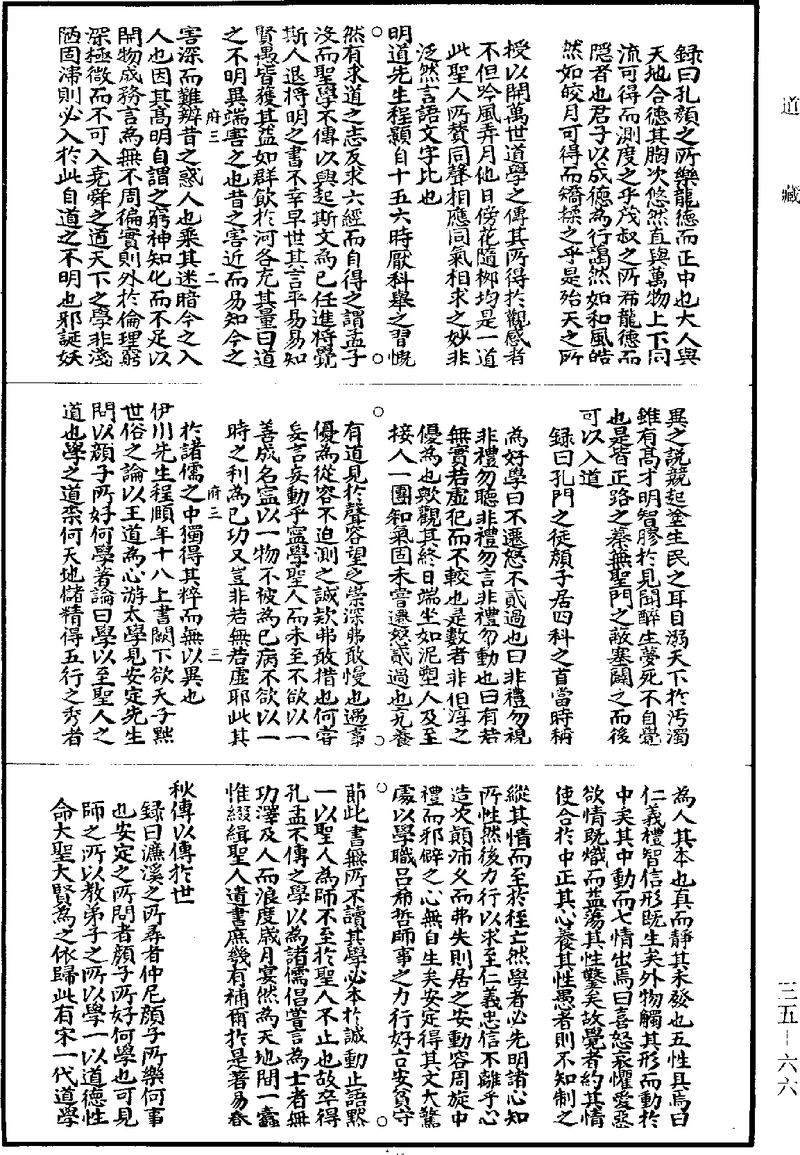 道藏
錄曰孔顏之所樂龍德而正中也大人與
天地合德其胸次悠然直與萬物上下同
流可得而測度之乎茂叔之所希龍德而
隱者也君子以成德為行藹然如和風皓
然如皎月可得而矯揉之乎是殆天之所
授以開萬世道學之傳其所得於觀感者
不但吟風弄月他日傍花隨柳均是一道
此聖人所贊同聲相應同氣相求之妙非
泛然言語文字比也
明道先生程顥自十五六時厭科舉之習慨
然有求道之志反求六經而自得之謂孟子
沒而聖學不傳以興起斯文為己任進將覺
斯人退將明之書不幸早世其言平易易知
賢愚皆獲其益如群飲於河各充其量曰道
之不明異端害之也昔之害近而易知今之
府三 二
害深而難辯昔之惑人也乘其迷暗今之入
人也因其高明自謂之窮神知化而不足以
開物成務言為無不周徧實則外於倫理窮
深極微而不可入堯舜之道天下之學非淺
陋固滯則必入於此自道之不明也邪誕妖
異之說競起塗生民之耳目溺天下於污濁
雖有高才明智膠於見聞醉生夢死不自覺
也是皆正路之蓁蕪聖門之蔽塞闢之而後
可以入道
錄曰孔門之徒顏子居四科之首當時稱
為好學曰不遷怒不貳過也曰非禮勿視
非禮勿聽非禮勿言非禮勿動也曰有若
無實若虛犯而不較也是數者非但淳之
優為也歟觀其終日端坐如泥塑人及至
接人一團和氣固未嘗遷怒貳過也充養
有道見於聲容望之崇深弗敢慢也遇事
優為從容不迫測之誠款弗敢措也何嘗
妄言妄動乎寧學聖人而未至不欲以一
善成名寧以一物不被為己病不欲以一
時之利為己功又豈非若無若虛耶此其
府三 三
於諸儒之中獨得其粹而無以異也
伊川先生程頤年十八上書闕下欲天子黜
世俗之論以王道為心游太學見安定先生
問以顏子所好何學著論曰學以至聖人之
道也學之道柰何天地儲精得五行之秀者
為人其本也真而靜其未發也五性具焉曰
仁義禮智信形既生矣外物觸其形而動於
中矣其中動而七情出焉曰喜怒哀懼愛惡
欲情既熾而益蕩其性鑿矣故覺者約其情
使合於中正其心養其性愚者則不知制之
縱其情而至於桎亡然學者必先明諸心知
所性然後力行以求至仁義忠信不離乎心
造次顛沛久而弗失則居之安動容周旋中
禮而邪僻之心無自生矣安定得其文大驚
處以學職呂希哲師事之力行好古安貧守
節此書無所不讀其學必本於誠動止語默
一以聖人為師不至於聖人不止也故卒得
孔孟不傳之學以為諸儒倡嘗言為士者無
功澤及人而浪度歲月宴然為天地間一蠹
惟綴緝聖人遺書庶幾有補爾於是著易春
秋傳以傳於世
錄曰濂溪之所尋者仲尼顏子所樂何事
也安定之所問者顏子所好何學也可見
師之所以教弟子之所以學一以道德性
命大聖大賢為之依歸此有宋一代道學
三五－六六